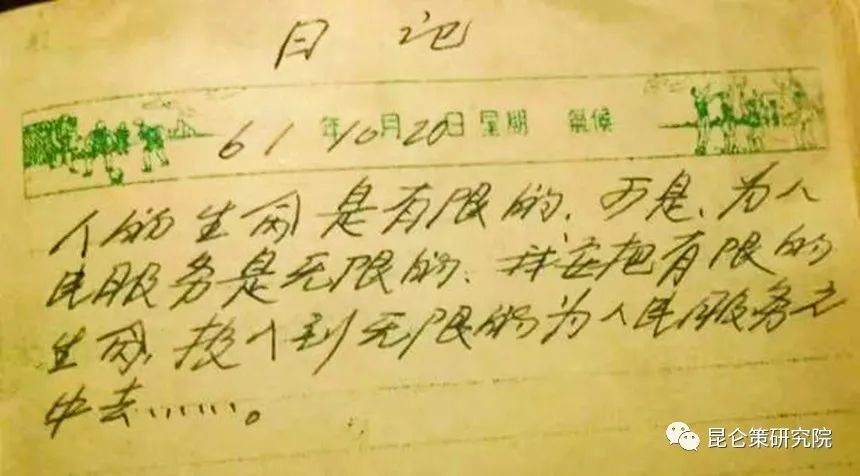 日记
61年10月20日 星期 氣候
人的生命是有限的、可是、为人
民服务是无限的、我要把有限的
生命、投入到无限的为人民服务之
中去……。
昆仑策研究院